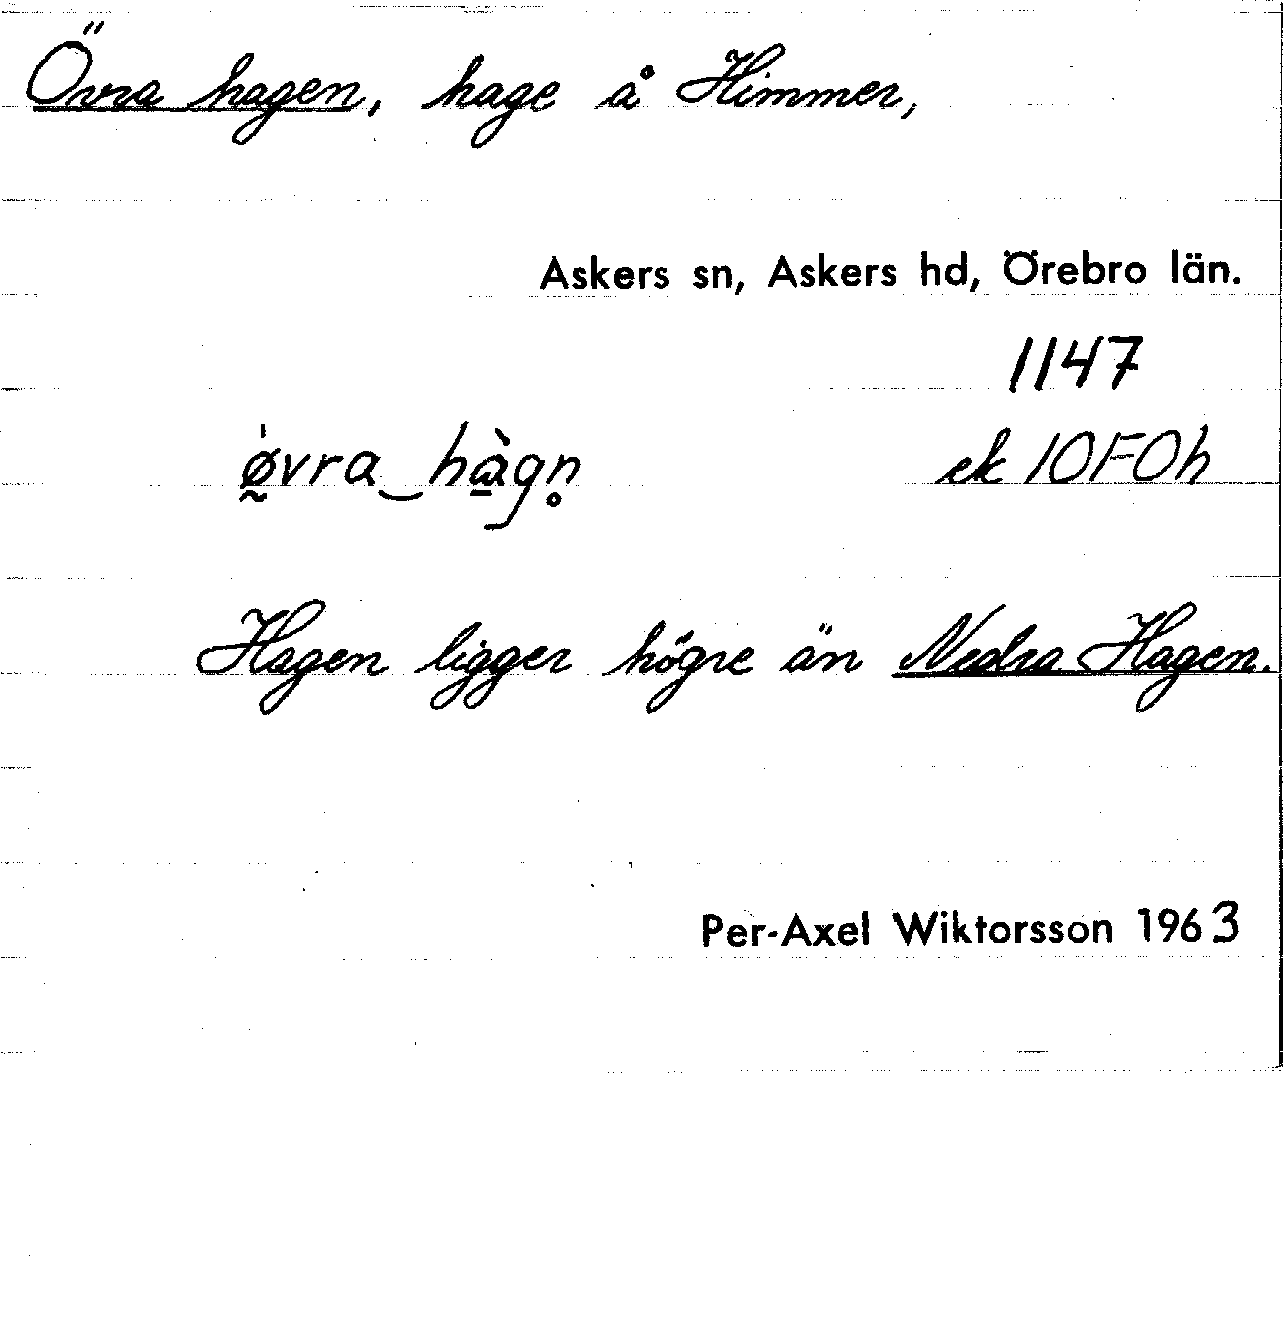 Övra hagen, hage å Himmer,
Askers sn, Askers hd, Örebro län.
1147
ø̰̍vra‿hа̱̀gn̥ ek 10F0h
Hagen ligger högre än Nedra Hagen.
Per-Axel Wiktorsson 1963